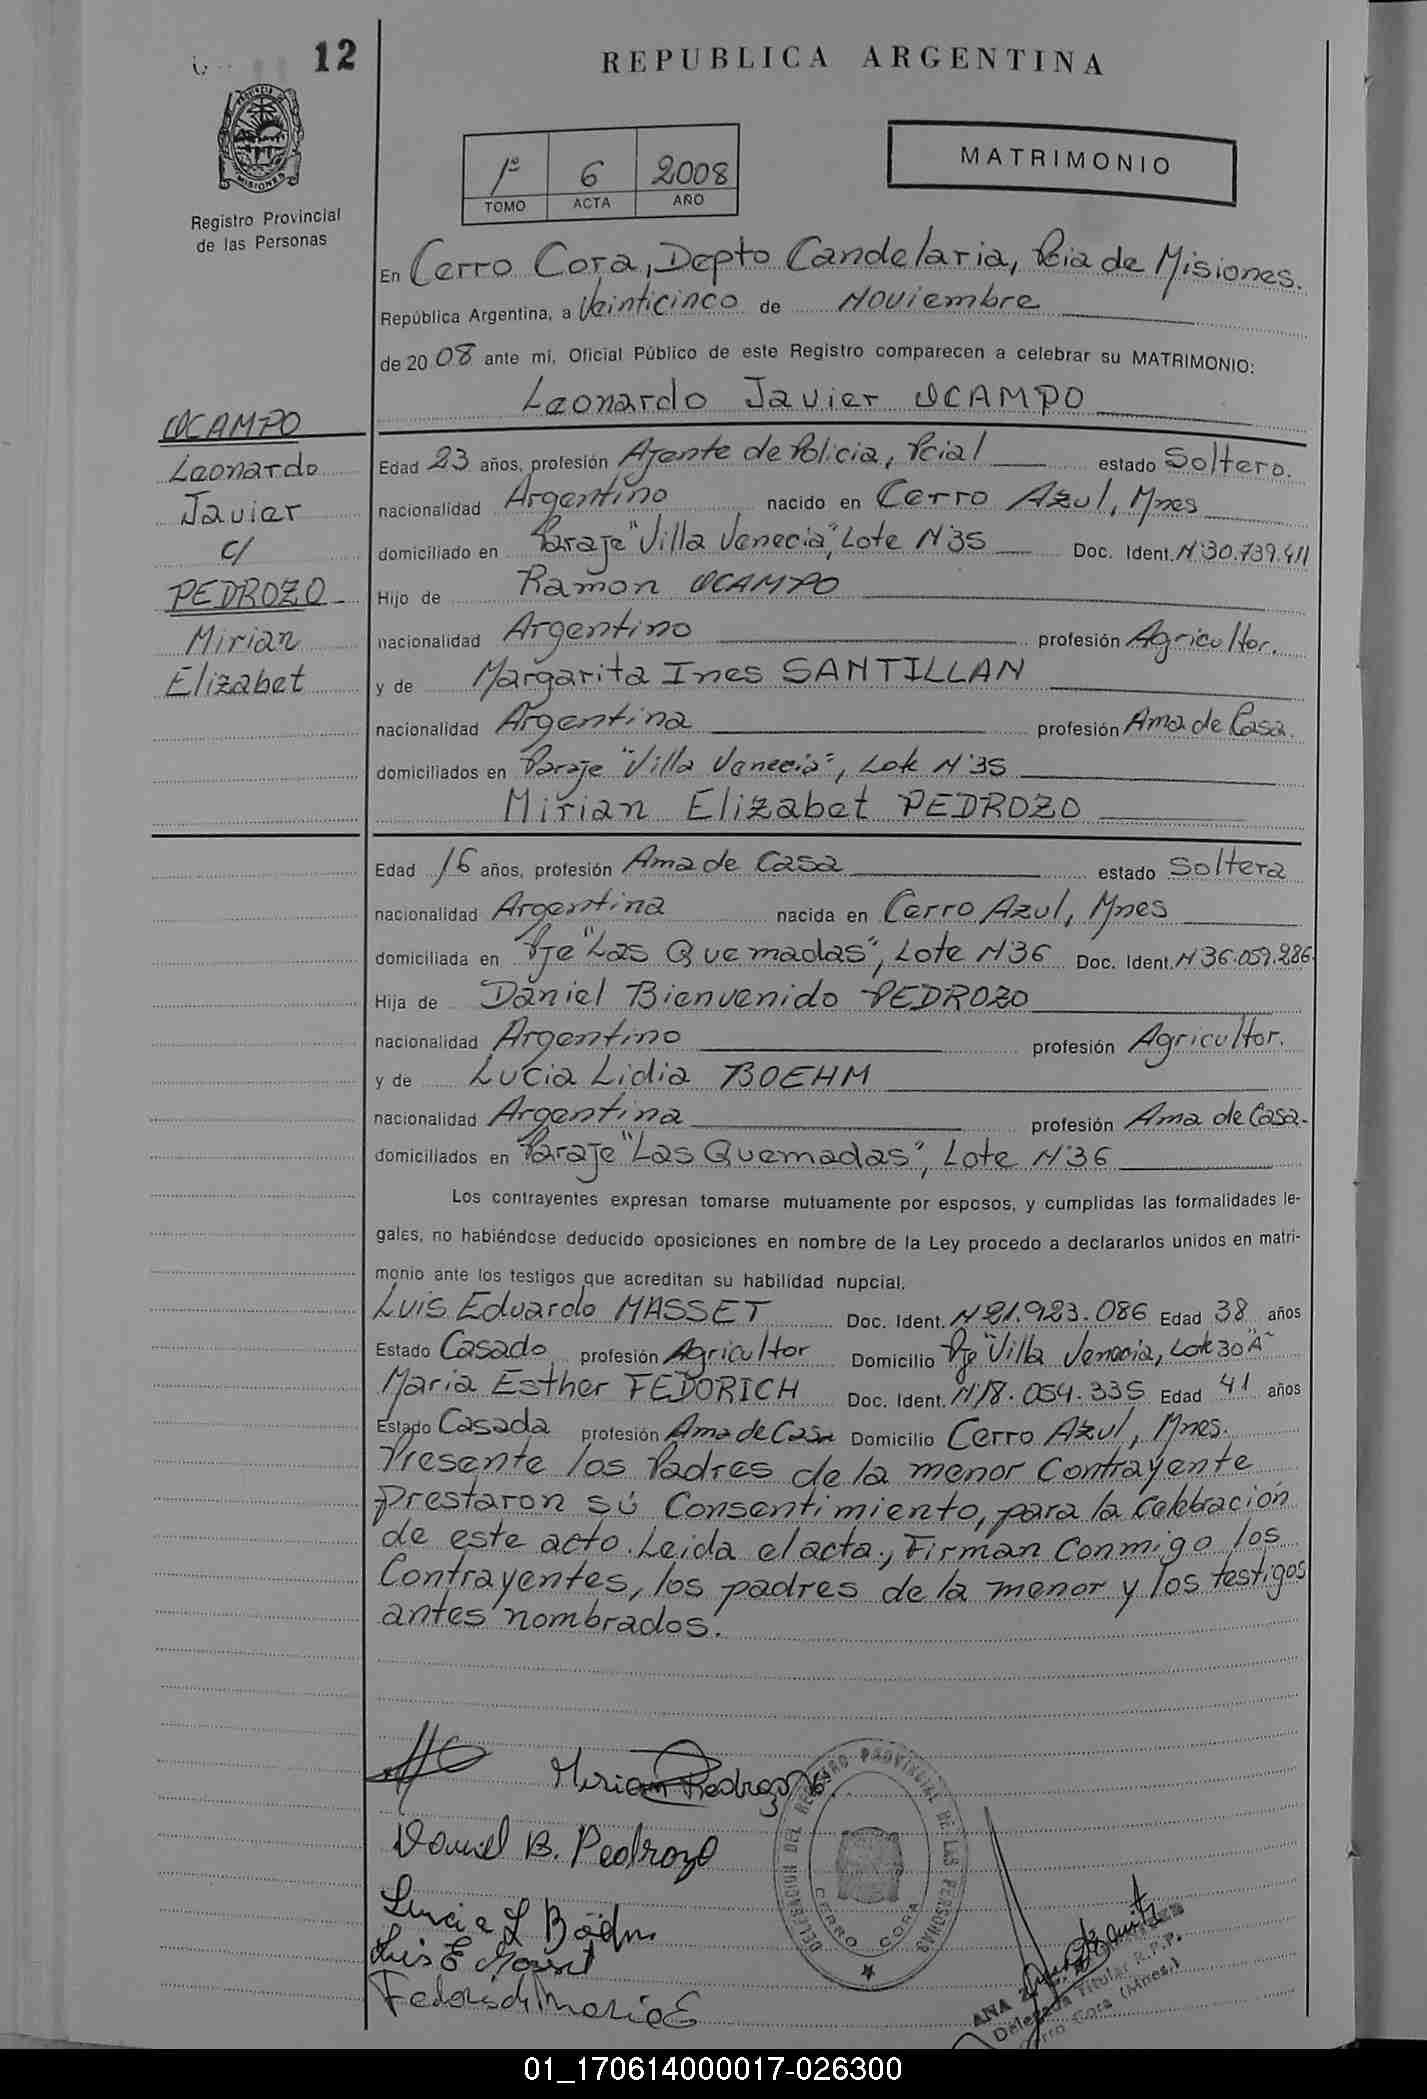 12
REPUBLICA ARGENTINA
PROVINCIA DE MISIONES
Registro Provincial
de las Personas
1º 6 2008
TOMO ACTA AÑO
MATRIMONIO
En Cerro Cora, Depto Candelaria, Pcia de Misiones.
República Argentina, a Veinticinco de Noviembre
de 2008 ante mí, Oficial Público de este Registro comparecen a celebrar su MATRIMONIO:
Leonardo Javier OCAMPO
OCAMPO
Leonardo
Javier
c/
PEDROZO
Mirian
Elizabet
Edad 23 años, profesión Agente de Policia, Pcial estado Soltero.
nacionalidad Argentino nacido en Cerro Azul, Mnes
domiciliado en Paraje "Villa Venecia", Lote Nº35 Doc. Ident. Nº30.739.411
Hijo de Ramon OCAMPO
nacionalidad Argentino profesión Agricultor.
y de Margarita Ines SANTILLAN
nacionalidad Argentina profesión Ama de Casa.
domiciliados en Paraje "Villa Venecia", Lote Nº35
Mirian Elizabet PEDROZO
Edad 16 años, profesión Ama de Casa estado Soltera
nacionalidad Argentina nacida en Cerro Azul, Mnes
domiciliada en Pje "Las Quemadas", Lote Nº36 Doc. Ident. Nº36.059.286.
Hija de Daniel Bienvenido PEDROZO
nacionalidad Argentino profesión Agricultor.
y de Lucia Lidia BOEHM
nacionalidad Argentina profesión Ama de Casa.
domiciliados en Paraje "Las Quemadas", Lote Nº36
Los contrayentes expresan tomarse mutuamente por esposos, y cumplidas las formalidades le-
gales, no habiéndose deducido oposiciones en nombre de la Ley procedo a declararlos unidos en matri-
monio ante los testigos que acreditan su habilidad nupcial.
Luis Eduardo MASSET Doc. Ident. Nº21.923.086 Edad 38 años
Estado Casado profesión Agricultor Domicilio Pje "Villa Venecia, Lote 30 "A"
Maria Esther FEDORICH Doc. Ident. Nº18.054.335 Edad 41 años
Estado Casada profesión Ama de Casa Domicilio Cerro Azul, Mnes.
Presente los Padres de la menor Contrayente
prestaron su Consentimiento, para la Celebración
de este acto. Leida el acta, Firman Conmigo los
Contrayentes, los padres de la menor y los testigos
antes nombrados.
Miriam Pedrozo
Daniel B. Pedrozo
Lucia L Böehm
Luis E Masset
Fedorich Maria E
DELEGACION DEL REGISTRO PROVINCIAL DE LAS PERSONAS
CERRO CORA
ANA
Delegada Titular R.P.P.
Cerro Cora (Mnes.)
01_170614000017-026300